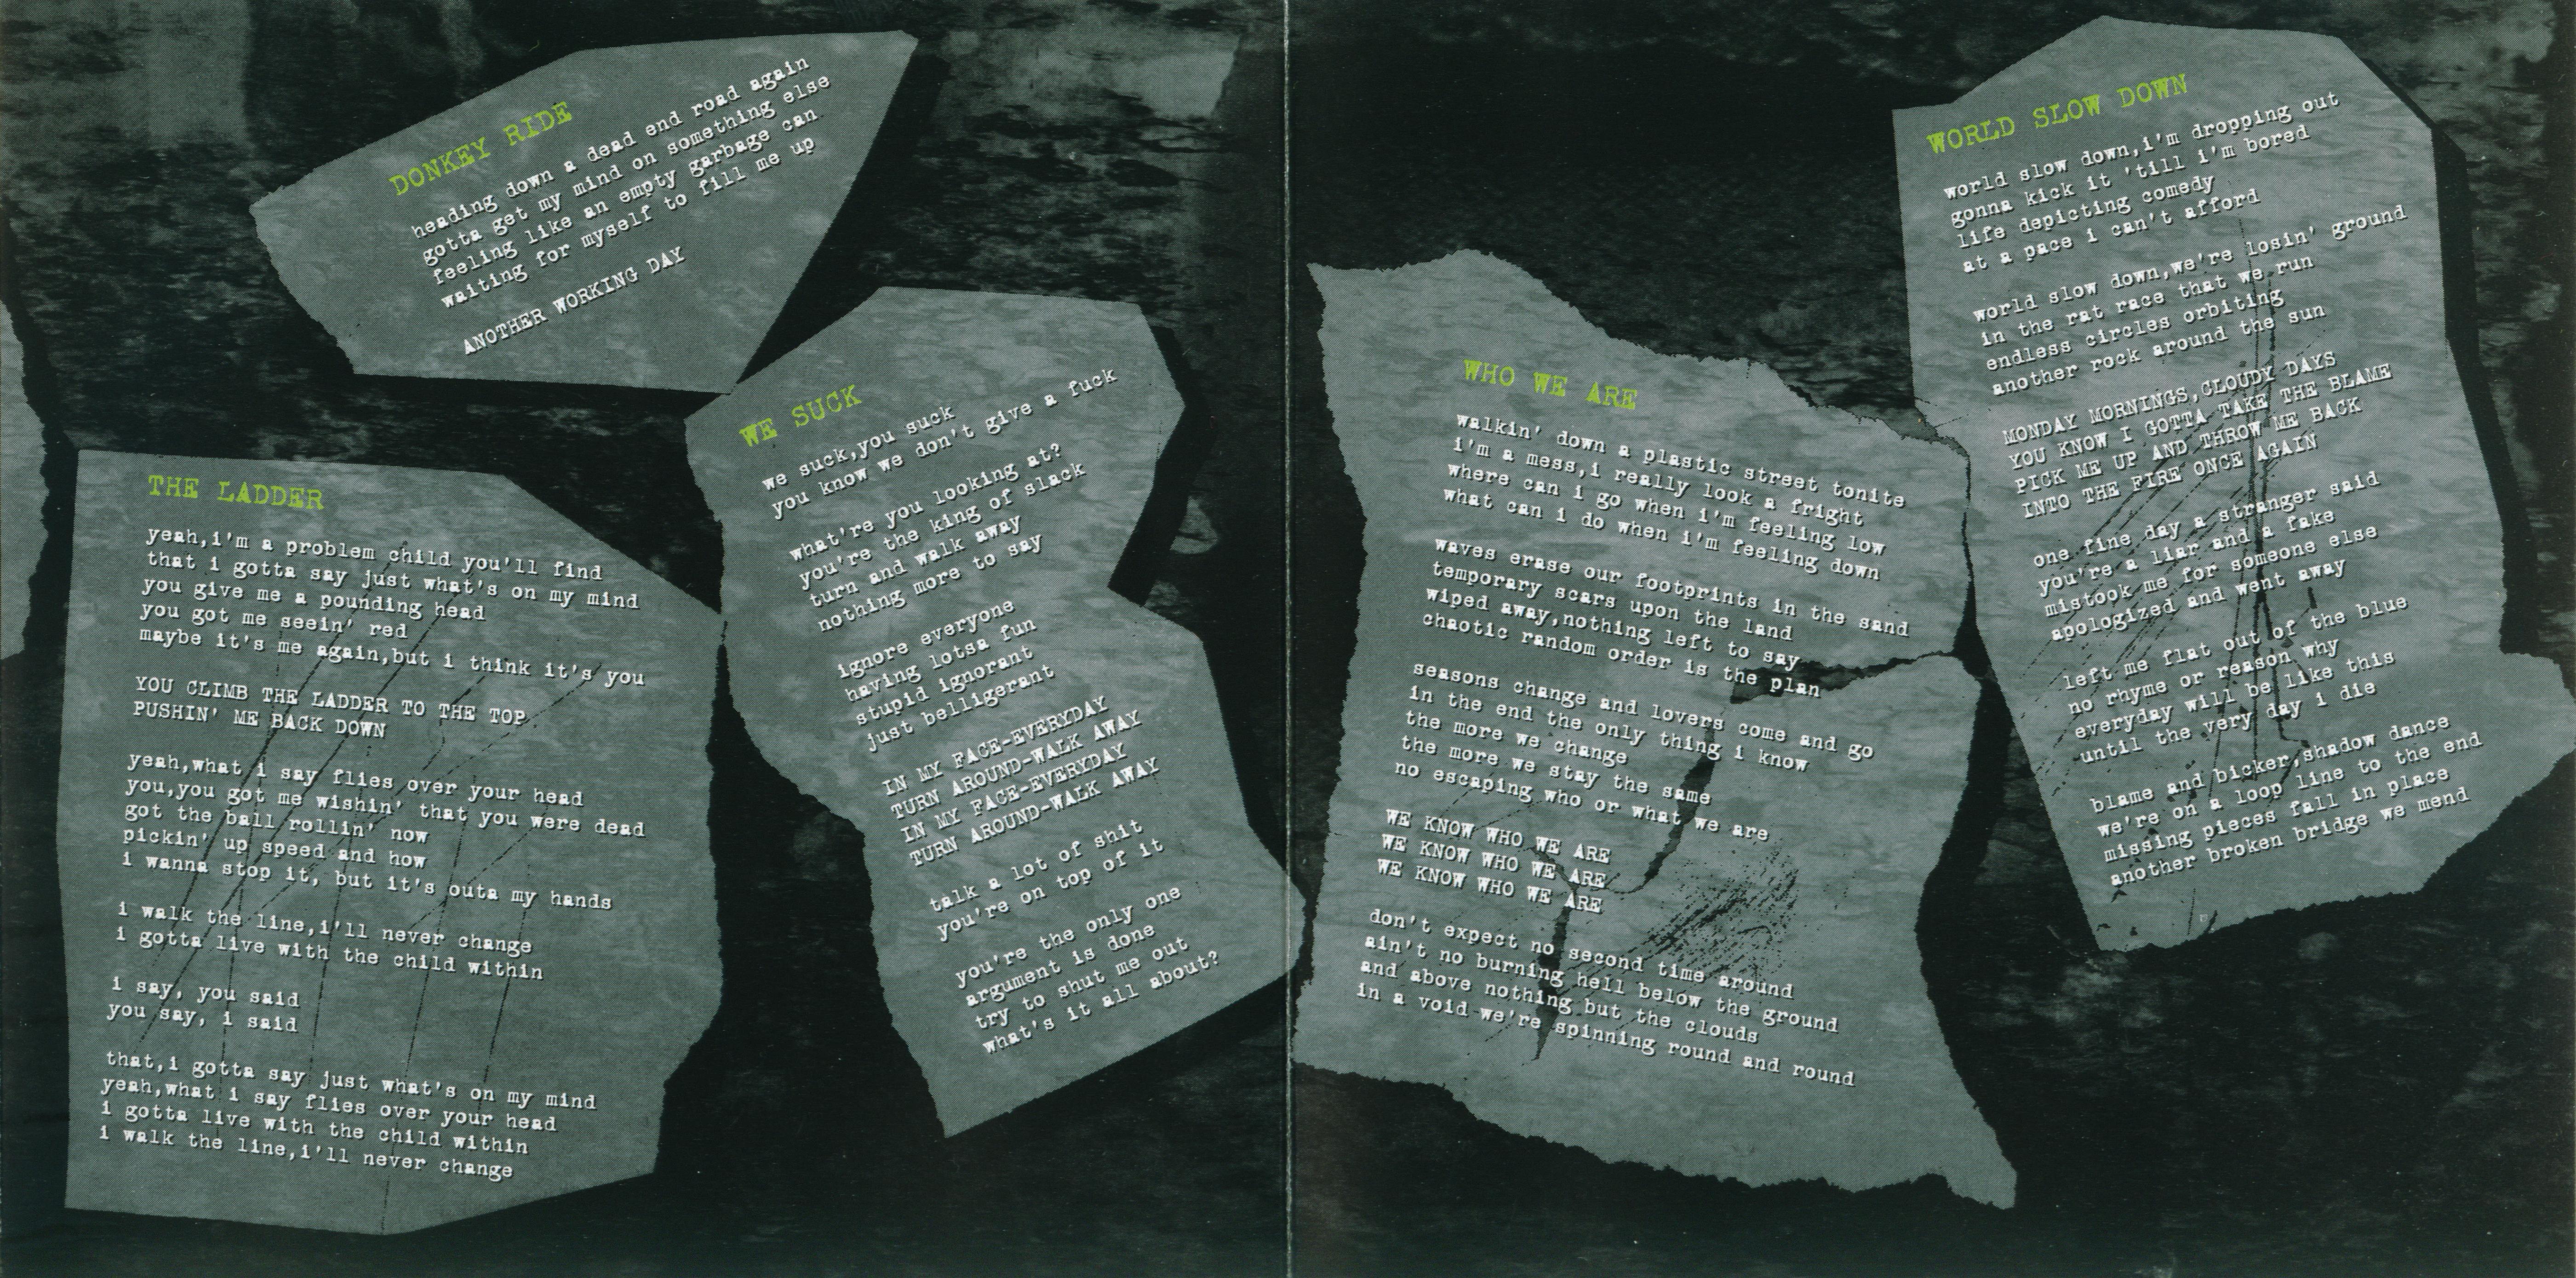 DONKEY RIDE
heading down a dead end road again
gotta get my mind on something else
feeling like an empty garbage can
waiting for myself to fill me up
ANOTHER WORKING DAY
THE LADDER
yeah,i'm a problem child you'll find
that i gotta say just what's on my mind
you give me a pounding head
you got me seein' red
maybe it's me again,but i think it's you
YOU CLIMB THE LADDER TO THE TOP
PUSHIN' ME BACK DOWN
yeah,what i say flies over your head
you,you got me wishin' that you were dead
got the ball rollin' now
pickin' up speed and how
i wanna stop it, but it's outa my hands
i walk the line,i'll never change
i gotta live with the child within
i say, you said
you say, i said
that,i gotta say just what's on my mind
yeah,what i say flies over your head
i gotta live with the child within
i walk the line,i'll never change
WE SUCK
we suck,you suck
you know we don't give a fuck
what're you looking at?
you're the king of slack
turn and walk away
nothing more to say
ignore everyone
having lotsa fun
stupid ignorant
just belligerant
IN MY FACE-EVERYDAY
TURN AROUND-WALK AWAY
IN MY FACE-EVERYDAY
TURN AROUND-WALK AWAY
talk a lot of shit
you're on top of it
you're the only one
argument is done
try to shut me out
what's it all about?
WHO WE ARE
walkin' down a plastic street tonite
i'm a mess,i really look a fright
where can i go when i'm feeling low
what can i do when i'm feeling down
waves erase our footprints in the sand
temporary scars upon the land
wiped away,nothing left to say
chaotic random order is the plan
seasons change and lovers come and go
in the end the only thing i know
the more we change
the more we stay the same
no escaping who or what we are
WE KNOW WHO WE ARE
WE KNOW WHO WE ARE
WE KNOW WHO WE ARE
don't expect no second time around
ain't no burning hell below the ground
and above nothing but the clouds
in a void we're spinning round and round
WORLD SLOW DOWN
world slow down,i'm dropping out
gonna kick it 'till i'm bored
life depicting comedy
at a pace i can't afford
world slow down,we're losin' ground
in the rat race that we run
endless circles orbiting
another rock around the sun
MONDAY MORNINGS,CLOUDY DAYS
YOU KNOW I GOTTA TAKE THE BLAME
PICK ME UP AND THROW ME BACK
INTO THE FIRE ONCE AGAIN
one fine day a stranger said
you're a liar and a fake
mistook me for someone else
apologized and went away
left me flat out of the blue
no rhyme or reason why
everyday will be like this
until the very day i die
blame and bicker,shadow dance
we're on a loop line to the end
missing pieces fall in place
another broken bridge we mend